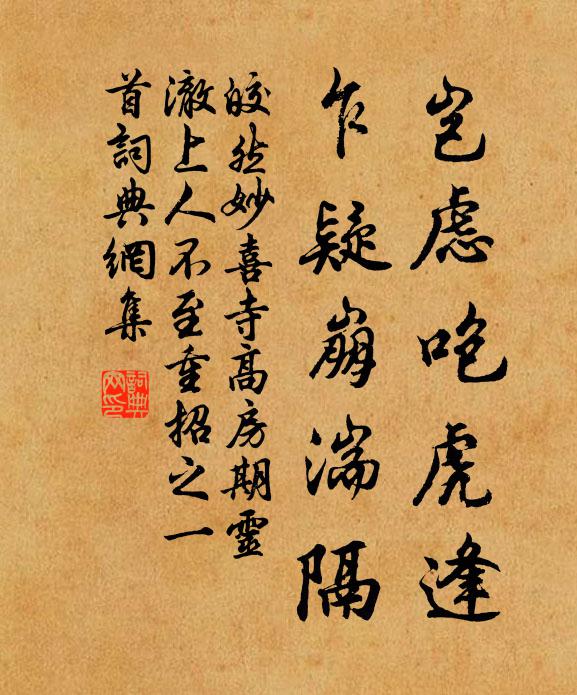 岂虑咆虎逢
乍疑崩湍隔
皎然妙喜寺高房期靈
澈上人不至重招之一
首詞典網集
詞典網印